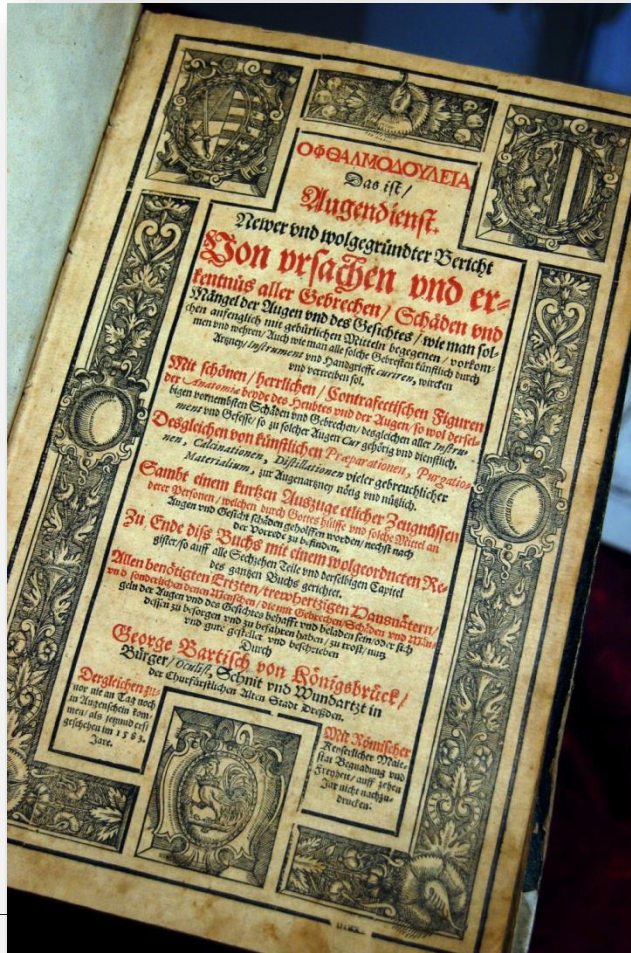 ΟΦΘΑΛΜΟΔΟΥΛΕΙΑ
Das ist/
Augendienst.
Newer vnd wolgegründter Bericht
Von vrsachen vnd er-
kentnüs aller Gebrechen/ Schäden vnd
Mängel der Augen vnd des Gesichtes/ wie man sol-
chen anfenglich mit gebürlichen Mitteln begegenen/ vorkom-
men vnd wehren/ Auch wie man alle solche Gebresten künstlich durch
Artzney/ Instrument vnd Handgrieffe curiren, wircken
vnd vertreiben sol.
Mit schönen/ herrlichen/ Contrafettischen Figuren
der Anatomia beyde des Heubtes vnd der Augen/ so wol dersel-
bigen vornembsten Schäden vnd Gebrechen/ desgleichen aller Instru-
ment vnd Gefesse/ so zu solcher Augen Cur gehörig vnd dienstlich.
Desgleichen von künstlichen Præparationen, Purgatio-
nen, Calcinationen, Distillationen vieler gebreuchlicher
Materialium, zur Augenartzney nötig vnd nützlich.
Sambt einem kurtzen Auszuge etlicher Zeugnüssen
derer Personen/ welchen durch Gottes hülffe vnd solche Mittel an
Augen vnd Gesicht schäden geholffen worden/ nechst nach
der Vorrede zu befinden.
Zu Ende diss Buchs mit einem wolgeordneten Re-
gister/ so auff alle Sechzehen Teile vnd derselbigen Capitel
des gantzen Buchs gerichtet.
Allen benötigten Ertzten/ trewhertzigen Hausvätern/
vnd sonderlichen denen Menschen/ die mit Gebrechen/ Schäden vnd Män-
geln der Augen vnd des Gesichtes behafft vnd beladen sein/ oder sich
dessen zu besorgen vnd zu befahren haben/ zu trost/ nutz
vnd gute gestellet vnd beschrieben
Durch
George Bartisch von Königsbrück/
Bürger/ Oculist, Schnit vnd Wundartzt in
der Churfürstlichen Alten Stadt Dreßden.
Dergleichen zu-
uor nie an Tag noch
in Augenschein kom-
men/ als jetzund erst
geschehen im 1583.
Jare.
Mit Römischer
Keyserlicher Maie-
stat Begnadung vnd
Freyheit/ auff zehen
Jar nicht nachzu-
drucken: